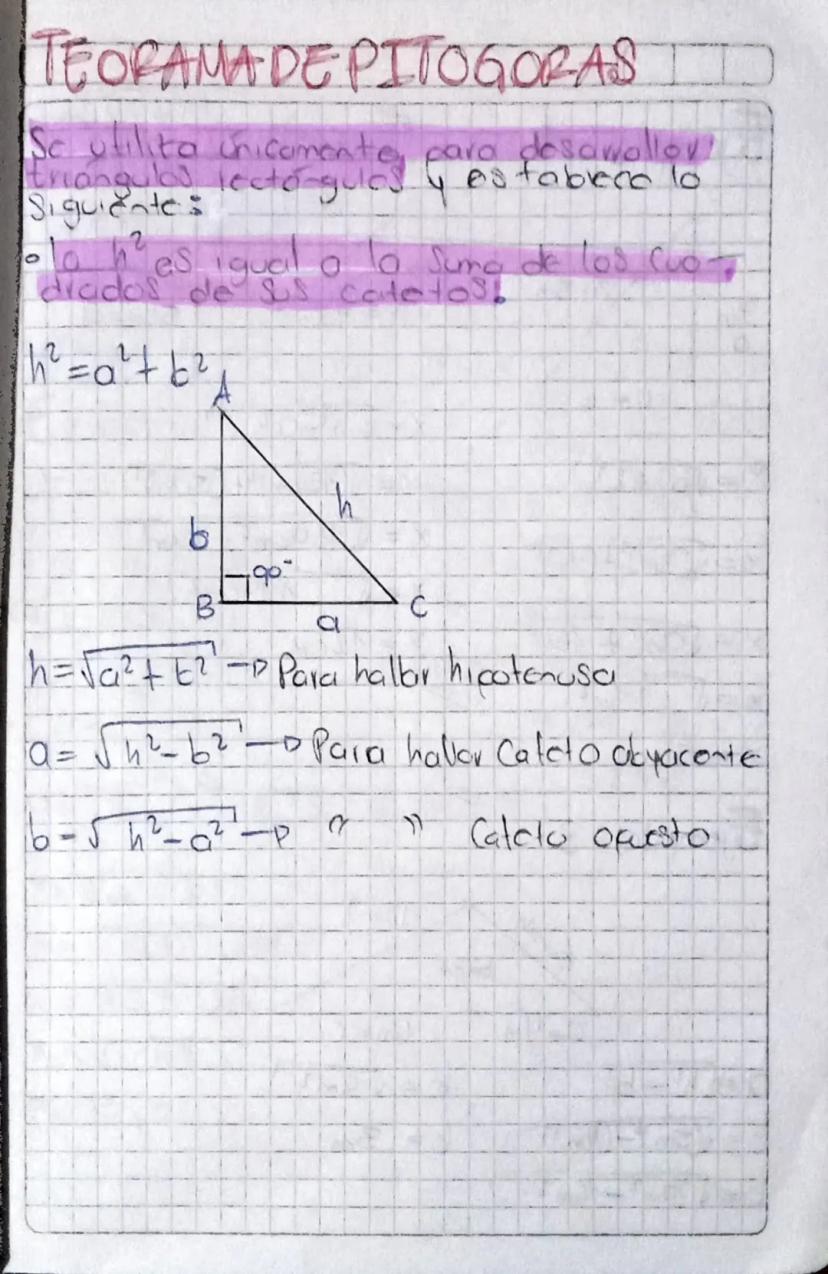 TEORAMA DE PITOGORAS
Se utiliza únicamente para desarrollar
triángulos rectángulos y establece lo
siguiente:
la h² es igual a la suma de los cua-
drados de sus catetos.
h²=a²+b²
A
h
b
90°
B
C
a
h=√a²+b² → Para hallar hipotenusa
a=√h²-b² → Para hallar Cateto adyacente
b=√h²-a² → " " Cateto opuesto